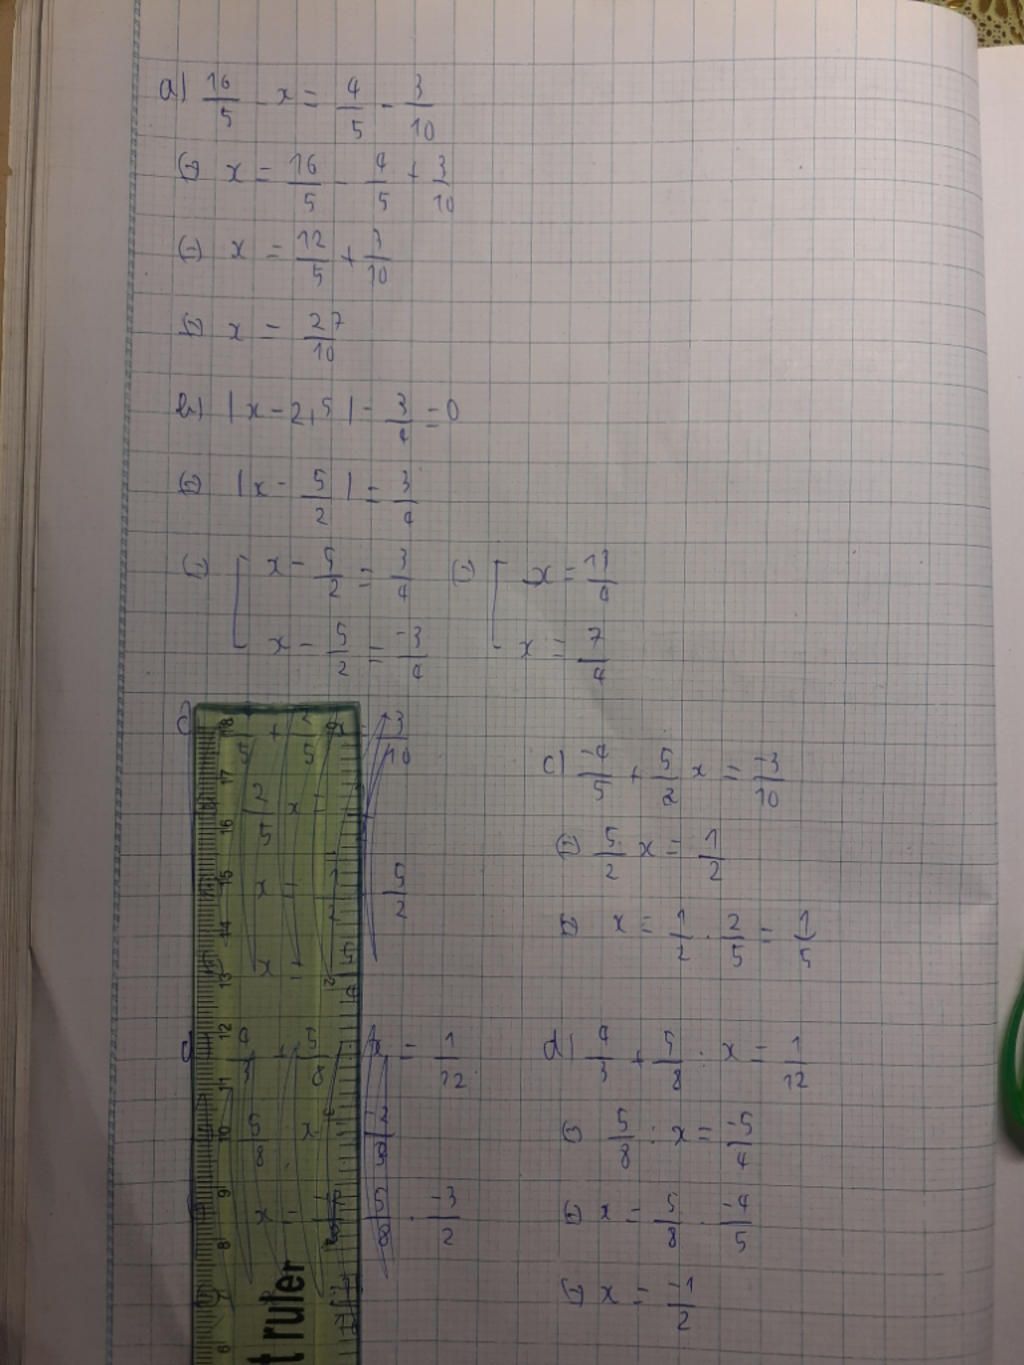 a) 16/5 - x = 4/5 - 3/10
⇔ x = 16/5 - 4/5 + 3/10
⇔ x = 12/5 + 3/10
⇔ x = 27/10
b) |x - 2,5| - 3/4 = 0
⇔ |x - 5/2| = 3/4
⇔ [ x - 5/2 = 3/4 ⇔ [ x = 13/4
x - 5/2 = -3/4 x = 7/4
c) -4/5 + 5/2 x = -3/10
⇔ 5/2 x = 1/2
⇔ x = 1/2 . 2/5 = 1/5
d) 4/3 + 5/8 : x = 1/12
⇔ 5/8 : x = -5/4
⇔ x = 5/8 . -4/5
⇔ x = -1/2
18
17
16
15
14
13
12
11
10
9
8
7
6
t ruler